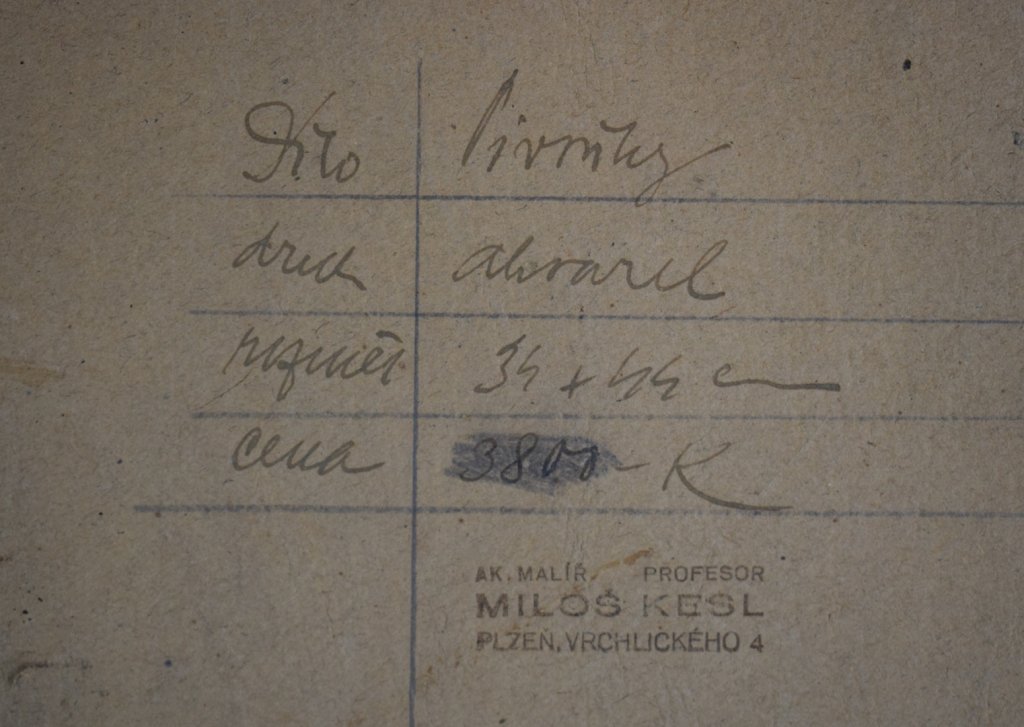 Dílo Pivoňky
druh akvarel
rozměr 34 x 44 cm
cena 3800 - K
AK. MALÍŘ PROFESOR
MILOŠ KESL
PLZEŇ, VRCHLICKÉHO 4